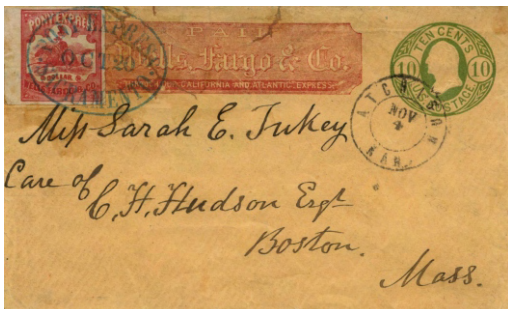 PONY EXPRESS
WELLS FARGO & CO.
PONY EXPRESS
OCT 20
PAID
Wells, Fargo & Co.
CALIFORNIA AND ATLANTIC EXPRESS
TEN CENTS
10 10
U.S. POSTAGE
ATCHISON
NOV
4
KAN.
Miss Sarah E. Tukey
Care of
C. H. Hudson Esqr
Boston.
Mass.